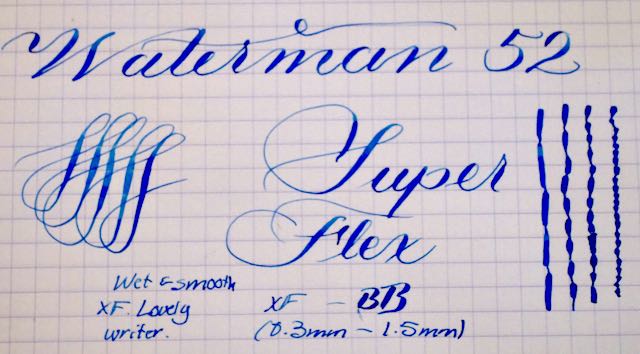 Waterman 52
Super
Flex
Wet & smooth
XF. Lovely
writer.
XF – BB
(0.3mm – 1.5mm)